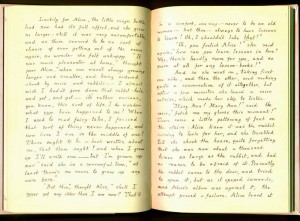 Luckily for Alice, the little magic bottle
had now had its full effect, and she grew
no larger: still it was very uncomfortable,
and, as there seemed to be no sort of
chance of ever getting out of the room
again, no wonder she felt unhappy.
was much pleasanter at home," thought
poor Alice, "when one wasn't always growing
larger and smaller, and being ordered
about by mice and rabbits.
wish I hadn't gone down that rabbit-hole,
and yet, and yet
you know, this sort of life. I do wonder
what can have happened to me! When
I used to read fairy tales, I fancied
that sort of thing never happened, and
now here I am in the middle of one!
There ought to be a book written about
me, that there ought! and when I grow
up I'll write one
up now," said she in a sorrowful tone, "at
least there's no room to grow up any more
here."
"But then," thought Alice, "shall I
never get any older than I am now? That'll
be a comfort, one way, never to be an old
woman, but then, always to have lessons
to learn! Oh, I shouldn't like that!"
"Oh, you foolish Alice!" she said
again, "how can you learn lessons in here?
Why, there's hardly room for you, and no
room at all for any lesson-books!"
And so she went on, taking first
one side, and then the other, and making
quite a conversation of it altogether, but
after a few minutes she heard a voice
outside, which made her stop to listen.
"Mary Ann! Mary Ann!" said the
voice, "fetch me my gloves this moment!"
Then came a little pattering of feet on
the stairs: Alice knew it was the rabbit
coming to look for her, and she trembled
till she shook the house, quite forgetting
that she was now about a thousand
times as large as the rabbit, and had
no reason to be afraid of it. Presently
the rabbit came to the door, and tried
to open it, but as it opened inwards,
and Alice's elbow was against it, the
attempt proved a failure. Alice heard it